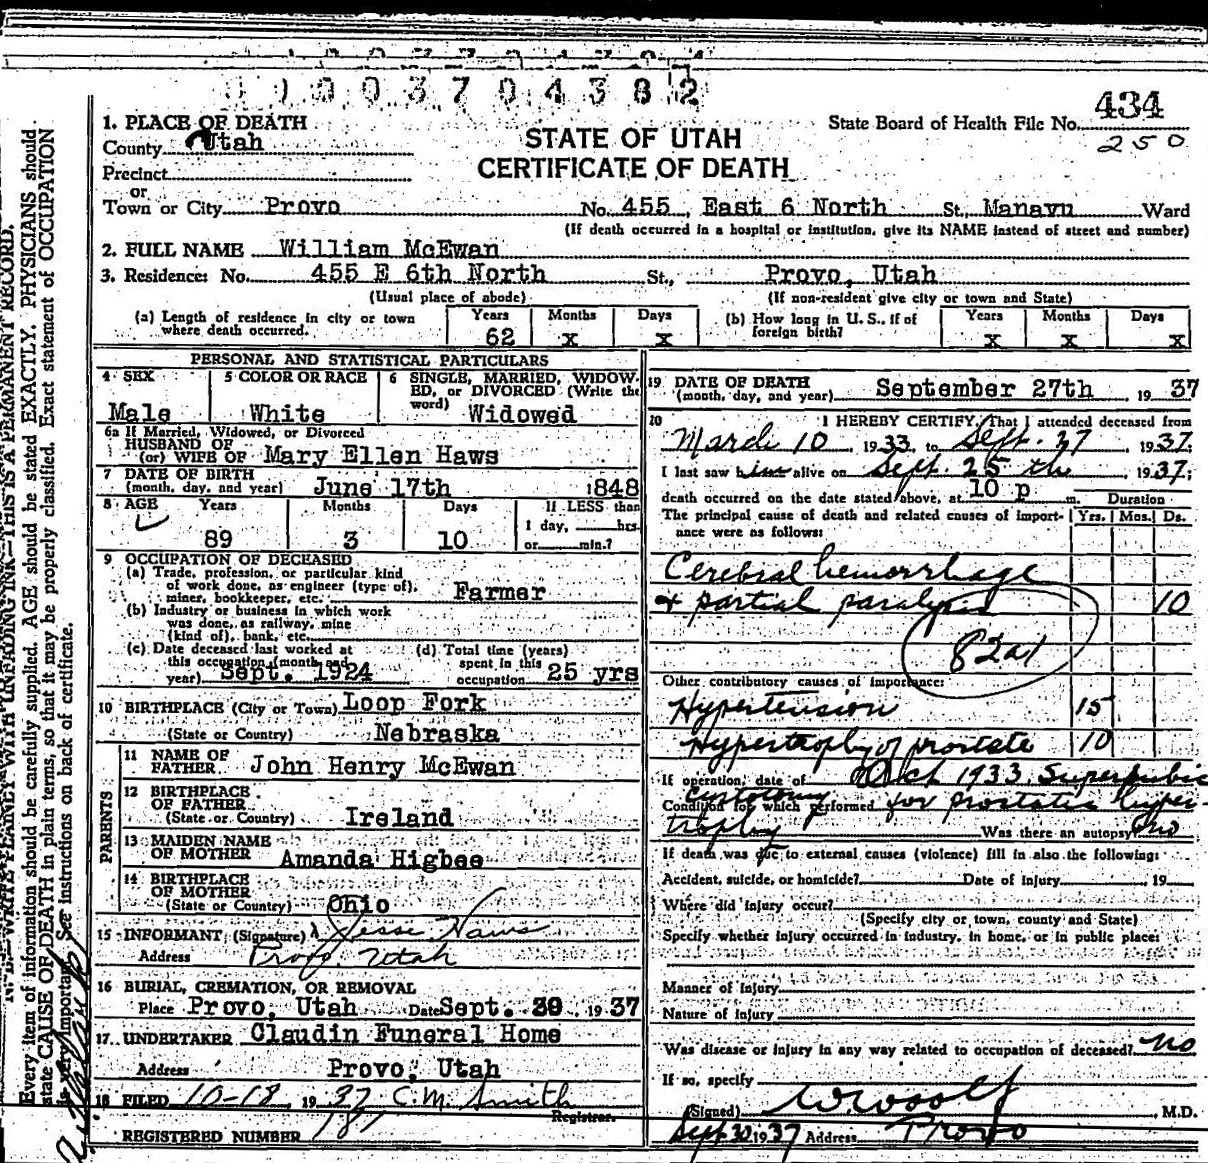 1003704382
434
State Board of Health File No.
250
STATE OF UTAH
CERTIFICATE OF DEATH
1. PLACE OF DEATH
County Utah
Precinct
or
Town or City Provo No. 455 East 6 North St, Manavu Ward
(If death occurred in a hospital or institution, give its NAME instead of street and number)
2. FULL NAME William McEwan
3. Residence: No. 455 E 6th North St., Provo, Utah
(Usual place of abode) (If non-resident give city or town and State)
(a) Length of residence in city or town where death occurred. Years 62 Months x Days x
(b) How long in U. S., if of foreign birth? Years x Months x Days x
PERSONAL AND STATISTICAL PARTICULARS
4 SEX Male
5 COLOR OR RACE White
6 SINGLE, MARRIED, WIDOWED, or DIVORCED (Write the word) Widowed
6a If Married, Widowed, or Divorced
HUSBAND OF
(or) WIFE OF Mary Ellen Haws
7 DATE OF BIRTH
(month, day, and year) June 17th 1848
8 AGE Years 89 Months 3 Days 10
If LESS than
1 day, hrs.
or min.?
9 OCCUPATION OF DECEASED
(a) Trade, profession, or particular kind
of work done, as engineer (type of),
miner, bookkeeper, etc. Farmer
(b) Industry or business in which work
was done, as railway, mine
(kind of), bank, etc.
(c) Date deceased last worked at
this occupation (month and
year) Sept. 1924
(d) Total time (years)
spent in this
occupation 25 yrs
10 BIRTHPLACE (City or Town) Loop Fork
(State or Country) Nebraska
PARENTS
11 NAME OF
FATHER John Henry McEwan
12 BIRTHPLACE
OF FATHER
(State or Country) Ireland
13 MAIDEN NAME
OF MOTHER Amanda Higbee
14 BIRTHPLACE
OF MOTHER
(State or Country) Ohio
15 INFORMANT (Signature) Jesse Haws
Address Provo, Utah
16 BURIAL, CREMATION, OR REMOVAL
Place Provo, Utah Date Sept. 30 1937
17 UNDERTAKER Claudin Funeral Home
Address Provo, Utah
18 FILED 10-18, 1937 C.M. Smith
Registrar.
REGISTERED NUMBER 181
19 DATE OF DEATH
(month, day, and year) September 27th 1937
20 I HEREBY CERTIFY, That I attended deceased from
March 10, 1933, to Sept. 27, 1937;
I last saw him alive on Sept. 25 the, 1937;
death occurred on the date stated above, at 10 p m.
Duration
The principal cause of death and related causes of importance were as follows: Yrs. Mos. Ds.
Cerebral hemorrhage
& partial paralysis 10
82a1
Other contributory causes of importance:
Hypertension 15
Hypertrophy of prostate 10
If operation, date of Oct 1933. Superpubic
cystotomy
Condition for which performed for prostatic hyper-
trophy Was there an autopsy no
If death was due to external causes (violence) fill in also the following:
Accident, suicide, or homicide? Date of injury 19
Where did injury occur?
(Specify city or town, county and State)
Specify whether injury occurred in industry, in home, or in public place:
Manner of Injury
Nature of Injury
Was disease or injury in any way related to occupation of deceased? no
If so, specify
(Signed) W. Woolf, M.D.
Sept 30 1937 Address Provo
N. B.—WRITE PLAINLY WITH UNFADING INK—THIS IS A PERMANENT RECORD.
Every item of information should be carefully supplied. AGE should be stated EXACTLY. PHYSICIANS should
state CAUSE OF DEATH in plain terms, so that it may be properly classified. Exact statement of OCCUPATION
is very important. See instructions on back of certificate.